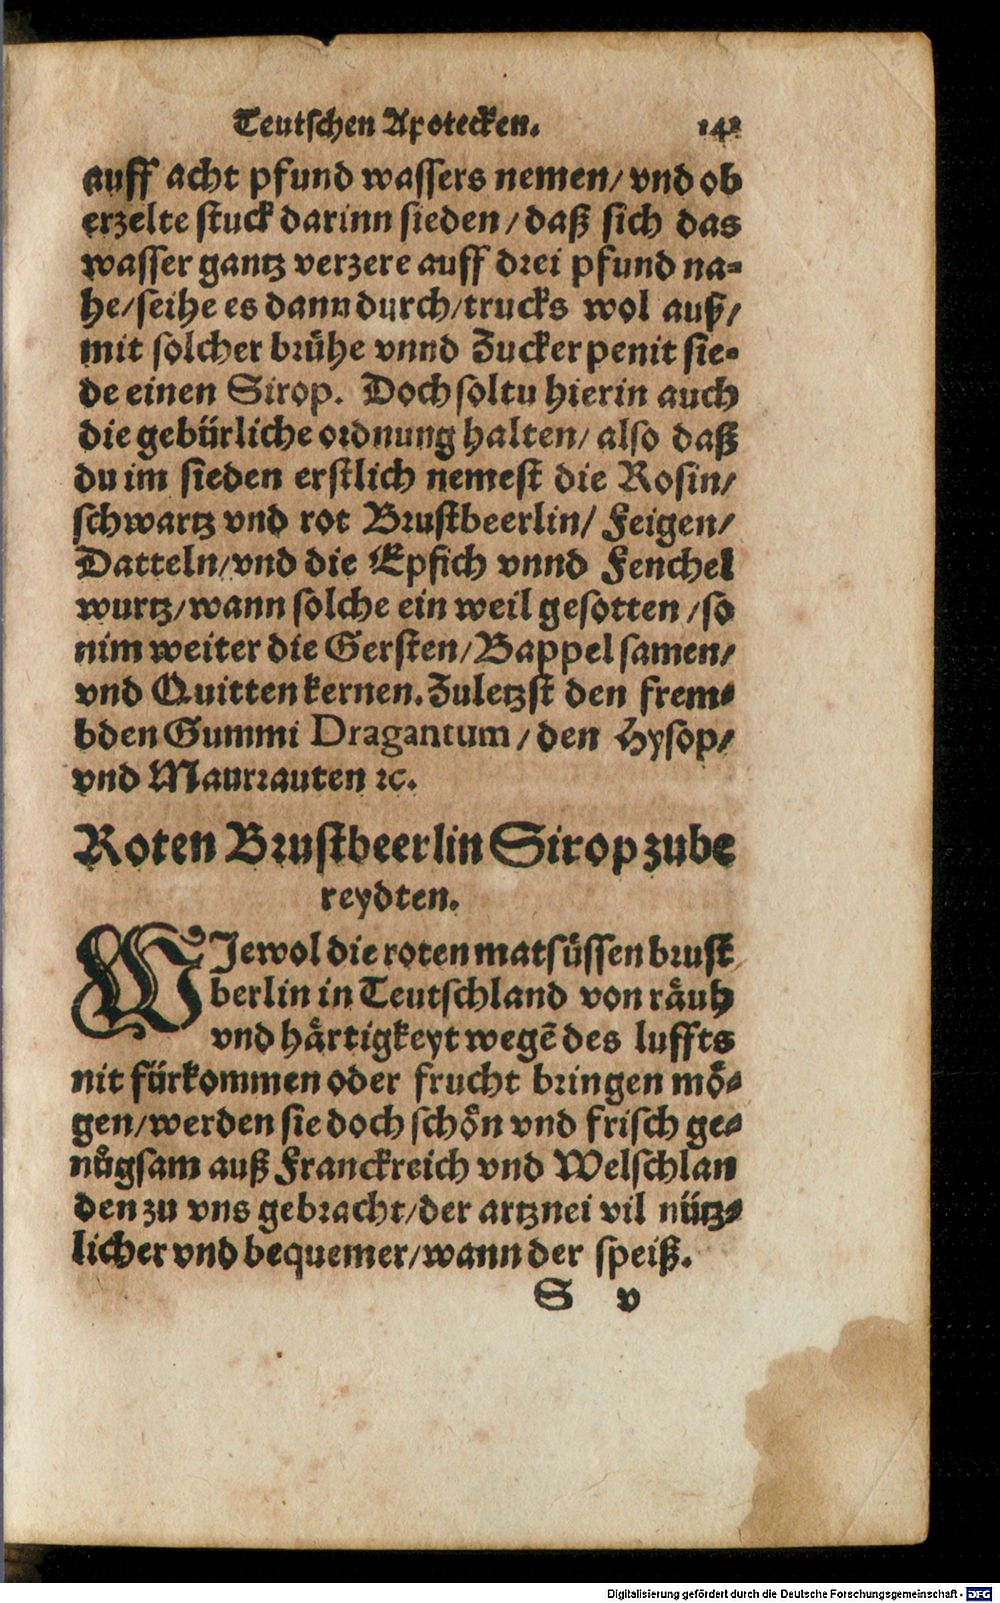 Teutschen Apotecken. 141
auff acht pfund wassers nemen/ vnd ob
erzelte stuck darinn sieden/ daß sich das
wasser gantz verzere auff drei pfund na⸗
he/ seihe es dann durch/ trucks wol auß/
mit solcher brühe vnnd Zucker penit sie⸗
de einen Sirop. Doch soltu hierin auch
die gebürliche ordnung halten/ also daß
du im sieden erstlich nemest die Rosin/
schwartz vnd rot Brustbeerlin/ Feigen/
Datteln/ vnd die Epfich vnnd Fenchel
wurtz/ wann solche ein weil gesotten/ so
nim weiter die Gersten/ Bappel samen/
vnd Quitten kernen. Zuletzst den frem⸗
bden Gummi Dragantum/ den Hysop/
vnd Maurrauten ꝛc.
Roten Brustbeerlin Sirop zube
reydten.
WJewol die roten matsüssen brust
berlin in Teutschland von räuh
vnd härtigkeyt wegē des luffts
nit fürkommen oder frucht bringen mö⸗
gen/ werden sie doch schön vnd frisch ge⸗
nůgsam auß Franckreich vnd Welschlan
den zu vns gebracht/ der artznei vil nütz⸗
licher vnd bequemer/ wann der speiß.
S v
Digitalisierung gefördert durch die Deutsche Forschungsgemeinschaft - DFG